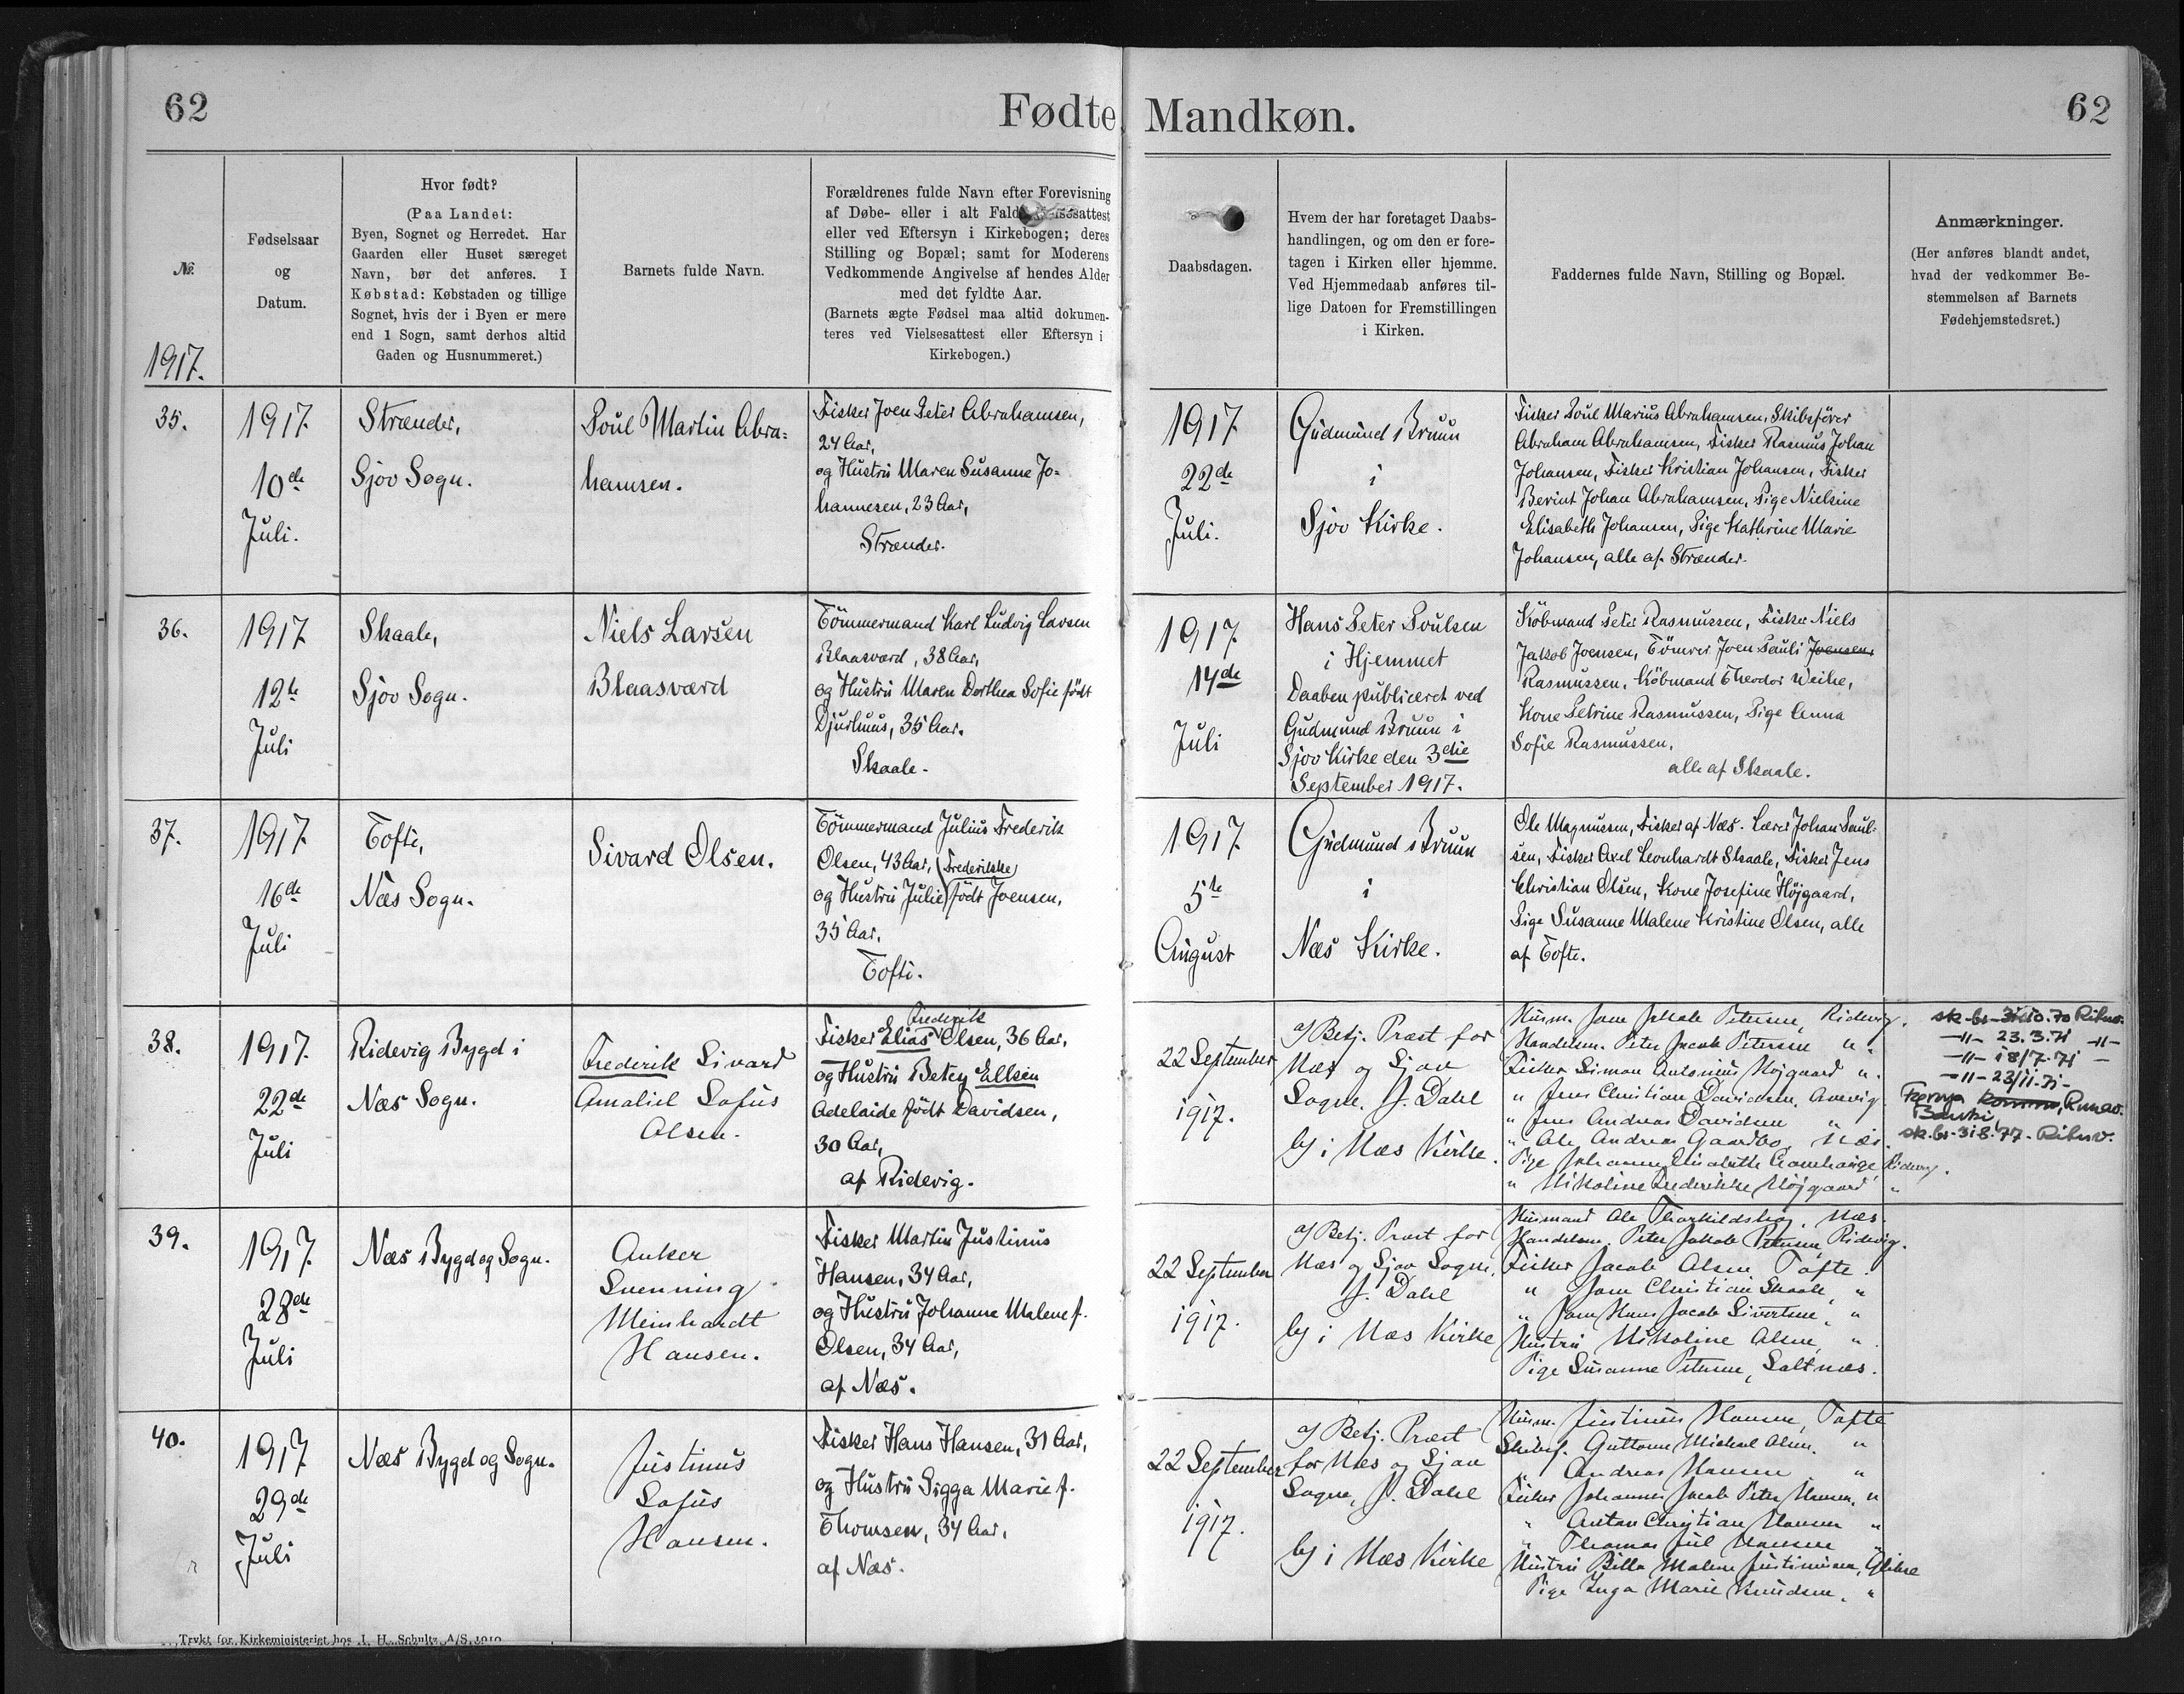 62
Fødte Mandkøn.
62
№
Fødselsaar
og
Datum.
Hvor født?
(Paa Landet:
Byen, Sognet og Herredet. Har
Gaarden eller Huset særeget
Navn, bør det anføres. I
Købstad: Købstaden og tillige
Sognet, hvis der i Byen er mere
end 1 Sogn, samt derhos altid
Gaden og Husnummeret.)
Barnets fulde Navn.
Forældrenes fulde Navn efter Forevisning
af Døbe- eller i alt Fald
eller ved Eftersyn i Kirkebogen; deres
Stilling og Bopæl; samt for Moderens
Vedkommende Angivelse af hendes Alder
med det fyldte Aar.
(Barnets ægte Fødsel maa altid dokumen-
teres ved Vielsesattest eller Eftersyn i
Kirkebogen.)
Daabsdagen.
Hvem der har foretaget Daabs-
handlingen, og om den er fore-
tagen i Kirken eller hjemme.
Ved Hjemmedaab anføres til-
lige Datoen for Fremstillingen
i Kirken.
Faddernes fulde Navn, Stilling og Bopæl.
Anmærkninger.
(Her anføres blandt andet,
hvad der vedkommer Be-
stemmelsen af Barnets
Fødehjemstedsret.)
1917.
35.
1917.
10de
Juli.
Strænder,
Sjov Sogn.
Poul Martin Abra-
hamsen.
Fisker Joen Peter Abrahamsen,
24 Aar,
og Hustru Maren Susanne Jo-
hannesen, 23 Aar,
Strænder.
1917
22de
Juli.
Gudmund Bruun
i
Sjov Kirke.
Fisker Poul Marius Abrahamsen, Skibsfører
Abraham Abrahamsen, Fisker Rasmus Johan
Johansen, Fisker Kristian Johansen, Fisker
Berint Johan Abrahamsen, Pige Nielsine
Elisabeth Johansen, Pige Kathrine Marie
Johansen, alle af Strænder.
36.
1917
12te
Juli
Skaale,
Sjov Sogn.
Niels Larsen
Blaasværd
Tömmermand Karl Ludvig Larsen
Blaasværd, 38 Aar,
og Hustru Maren Dorthea Sofie født
Djurhuus, 35 Aar.
Skaale.
1917.
14de
Juli
Hans Peter Poulsen
i Hjemmet
Daaben publiceret ved
Gudmund Bruun i
Sjov Kirke den 3die
September 1917.
Købmand Peter Rasmussen, Fisker Niels
Jakob Joensen, Tömrer Joen Pauli Joensen
Rasmussen, Købmand Theodor Weihe,
Kone Petrine Rasmussen, Pige Anna
Sofie Rasmussen,
alle af Skaale.
37.
1917.
16de
Juli
Tofte,
Næs Sogn.
Sivard Olsen.
Tömmermand Julius Frederik
Olsen, 43 Aar, (Frederikke)
og Hustru Julie født Joensen,
35 Aar,
Tofte.
1917
5te
August
Gudmund Bruun
i
Næs Kirke.
Ole Magnussen, Fisker af Næs. Lærer Johan Poul-
sen, Fisker Axel Leonhardt Skaale, Fisker Jens
Christian Olsen, Kone Josefine Højgaard,
Pige Susanne Malene Kristine Olsen, alle
af Tofte.
38.
1917.
22de
Juli
Ridevig Bygd i
Næs Sogn.
Frederik Sivard
Amaliel Sofus
Olsen.
Frederik
Fisker Elias Olsen, 36 Aar,
og Hustru Betey Ellsen
Adelaide født Davidsen,
30 Aar,
af Ridevig.
22 September
1917.
af Betj. Præst for
Næs og Sjov
Sogne, J. Dahl
og i Næs Kirke.
Husm. Joen Jakob Petersen, Ridevig.
Handelsm. Peter Jacob Petersen "
Fisker Simon Antonius Højgaard "
" Jens Christian Davidsen,
" Jens Andreas Davidsen "
" Ole Andreas Gaardbo, Næs.
Pige Johanne Elisabeth Ridevig.
" Nikoline Frederikke Højgaard "
23.3.71 -11-
-11- 18/7.71 -
-11- 23/11.71-
39.
1917.
28de
Juli
Næs Bygd og Sogn.
Anker
Meinhardt
Hansen.
Fisker Martin Justinus
Hansen, 34 Aar,
og Hustru Johanne Malene f.
Olsen, 34 Aar,
af Næs.
22 September
1917.
af Betj. Præst for
Næs og Sjov Sogne,
J. Dahl
og i Næs Kirke
Husmand Ole Thorkildshøj, Næs.
Handelsm. Peter Jakob Petersen, Ridevig.
Fisker Jacob Olsen, Tofte.
" Joen Christian Skaale, "
" Joen Hans Jacob Sivertsen, "
Hustru Nikoline Olsen, "
Pige Susanne Petersen, Saltnæs.
40.
1917
29de
Juli
Næs Bygd og Sogn.
Justinus
Sofus
Hansen.
Fisker Hans Hansen, 31 Aar,
og Hustru Sigga Marie f.
Thomsen, 34 Aar,
af Næs.
22 September
1917.
af Betj. Præst
for Næs og Sjov
Sogne, J. Dahl
og i Næs Kirke
Husm. Justinus Hansen, Tofte
Skibsf. Guttorm Michael Olsen. "
" Andreas Hansen "
Fisker Johannes Jacob Peter Hansen, "
" Anton Christian Hansen "
" Thomas Juul Hansen "
Hustru Billa Malene Justinussen, Glibre
Pige Inga Marie Knudsen, "
Trykt for Kirkeministeriet hos J. H. Schultz A/S. 1910